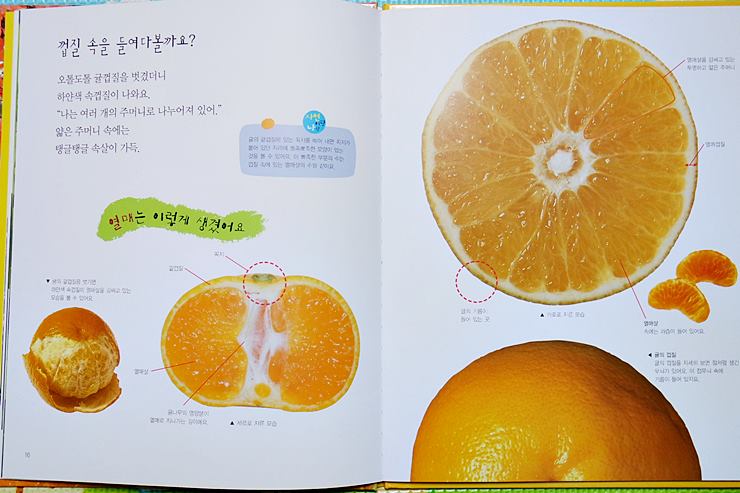 껍질 속을 들여다볼까요?
오톨도톨 귤껍질을 벗겼더니
하얀색 속껍질이 나와요.
“나는 여러 개의 주머니로 나누어져 있어.”
얇은 주머니 속에는
탱글탱글 속살이 가득.
열매는 이렇게 생겼어요
꼭지
겉껍질
▼ 귤의 겉껍질을 벗기면
하얀색 속껍질이 열매살을 감싸고 있는
모습을 볼 수 있어요.
열매살
귤나무의 영양분이
열매로 지나가는 길이에요.
▲ 세로로 자른 모습
16
열매살을 감싸고 있는
투명하고 얇은 주머니
열매껍질
귤의 기름이
들어 있는 곳
▲ 가로로 자른 모습
열매살
속에는 과즙이 들어 있어요.
◀ 귤의 껍질
귤의 껍질을 자세히 보면 점처럼 생긴
무늬가 있어요. 이 점무늬 속에
기름이 들어 있지요.